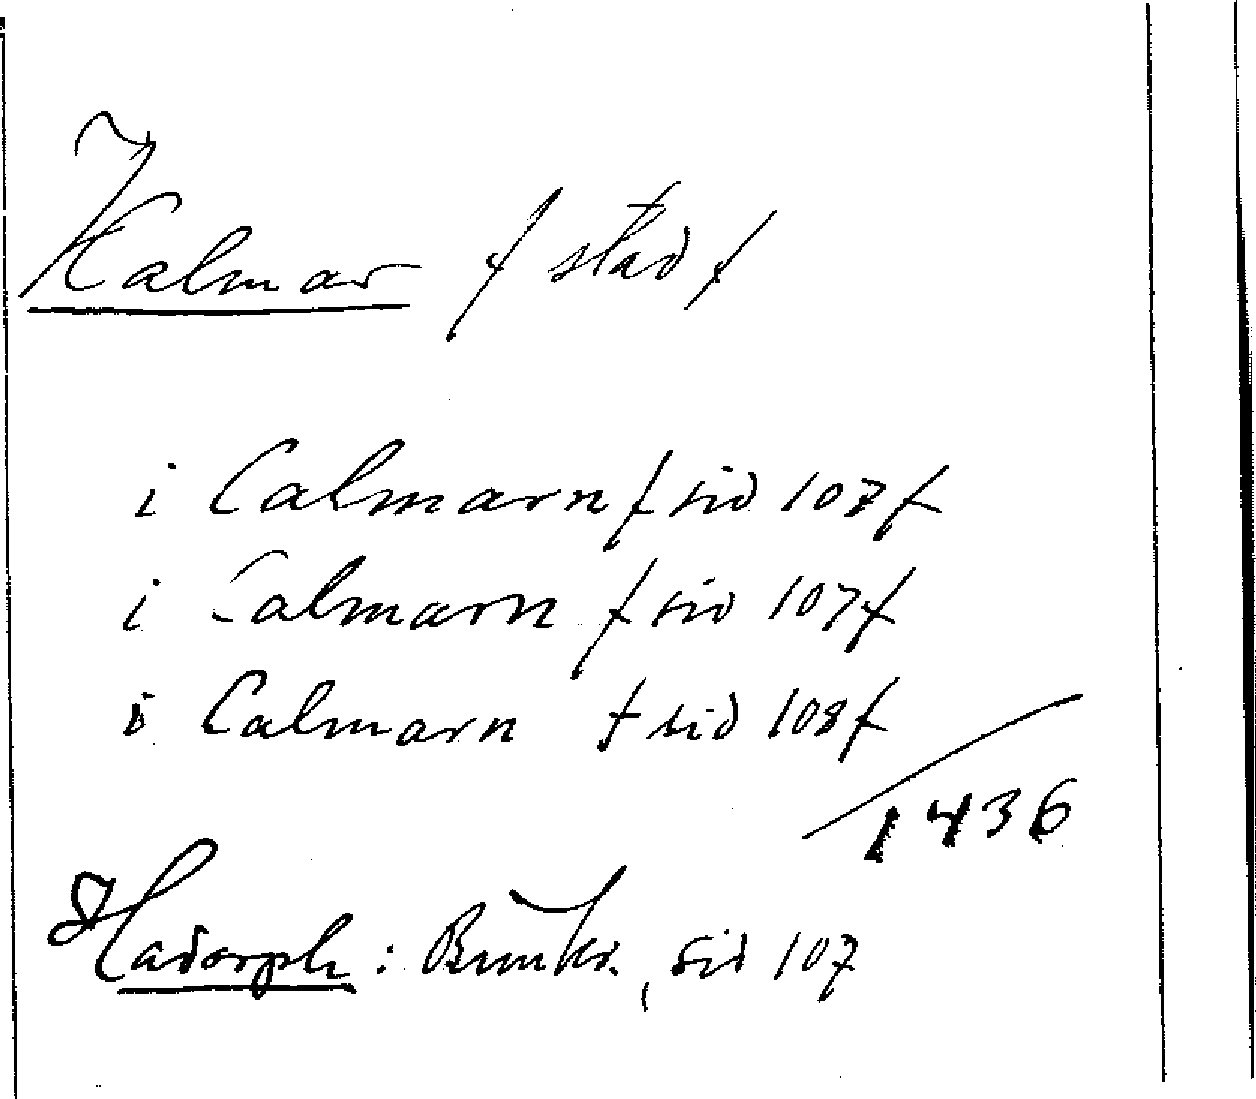 Kalmar / stad /
i Calmarn / sid 107 /
i Calmarn / sid 107 /
i Calmarn / sid 108 /
1436
Hadorph: Bimkr., sid 107